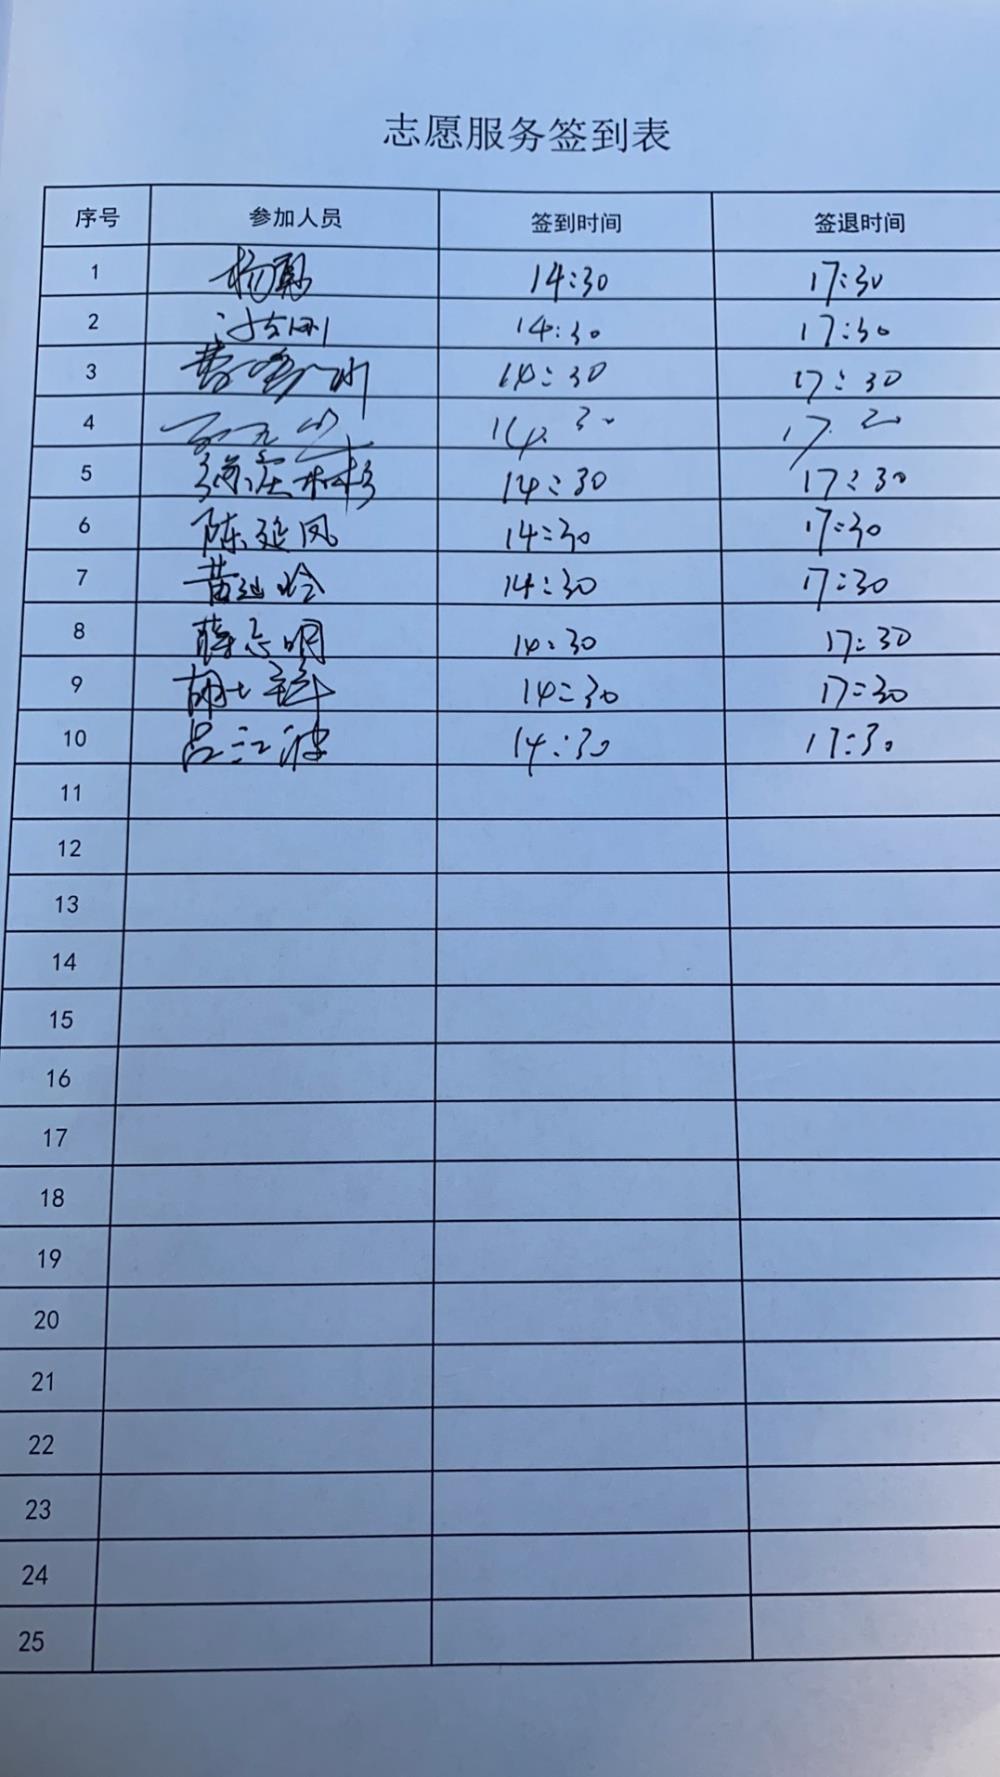 志愿服务签到表
序号 参加人员 签到时间 签退时间
1 杨勇 14:30 17:30
2 14:30 17:30
3 14:30 17:30
4 14:30 17:
5 14:30 17:30
6 陈延凤 14:30 17:30
7 黄 14:30 17:30
8 薛志明 14:30 17:30
9 胡士 14:30 17:30
10 吕江波 14:30 17:30
11
12
13
14
15
16
17
18
19
20
21
22
23
24
25